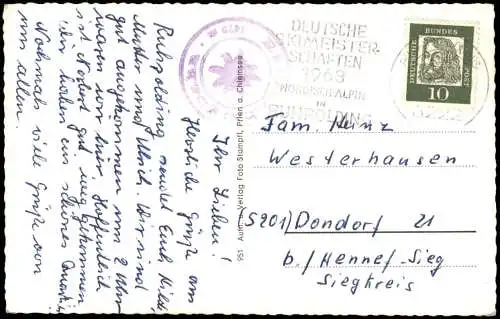 Ihr Lieben!
Herzliche Grüße aus
Ruhpolding sendet Euch Hilde,
Mutter und Ulrich. Wir sind
gut angekommen um 2 Uhr
waren wir hier. Hoffentlich
ist Norbert gut weggekommen
Wir haben ein schönes Quartier
Nochmals viele Grüße von
uns allen.
551 Aufn. u. Verlag Foto Stampfl, Prien a. Chiemsee
DEUTSCHE
SKIMEISTER
SCHAFTEN
1963
NORDISCH-ALPIN
IN
RUHPOLDING
DEUTSCHE BUNDESPOST
10
Fam. Heinz
Westerhausen
(5201) Dondorf 21
b/ Hennef-Sieg
Siegkreis